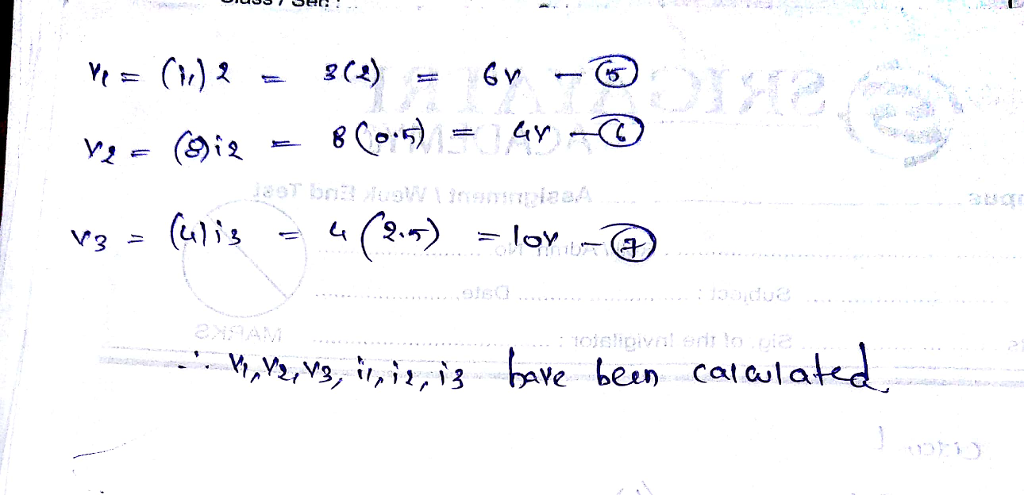 v1 = (i1) 2 = 3(2) = 6v - ⑤
v2 = (8)i2 = 8(0.5) = 4v - ⑥
v3 = (4)i3 = 4(2.5) = 10v - ⑦
∴ v1, v2, v3, i1, i2, i3 have been calculated